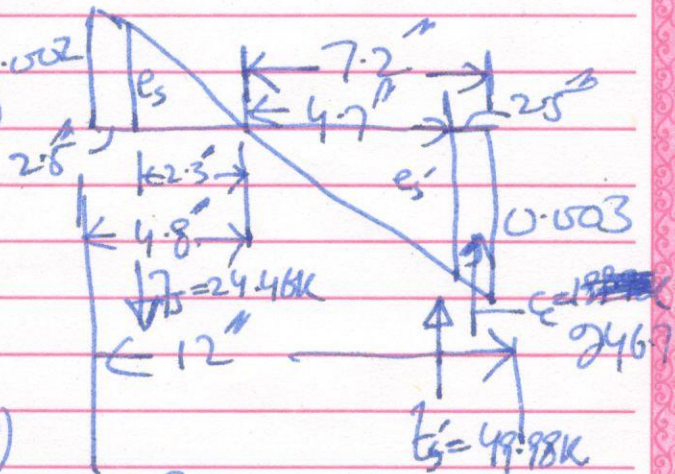 .002
7.2"
es
4.7"
2.5"
2.5"
2.3"
es'
4.8"
0.003
Ts=24.46K
12"
246.7
ts'=49.98K